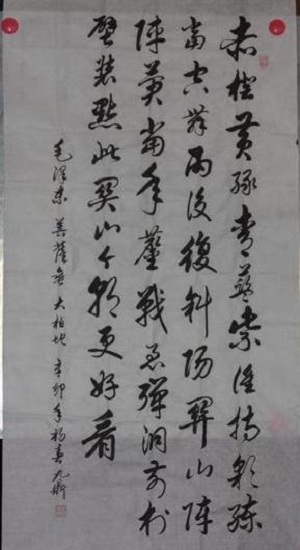 赤橙黄绿青蓝紫谁持彩练
当空舞雨后复斜阳关山阵
阵苍当年鏖战急弹洞前村
壁装点此关山今朝更好看
毛泽东菩萨蛮大柏地辛卯年